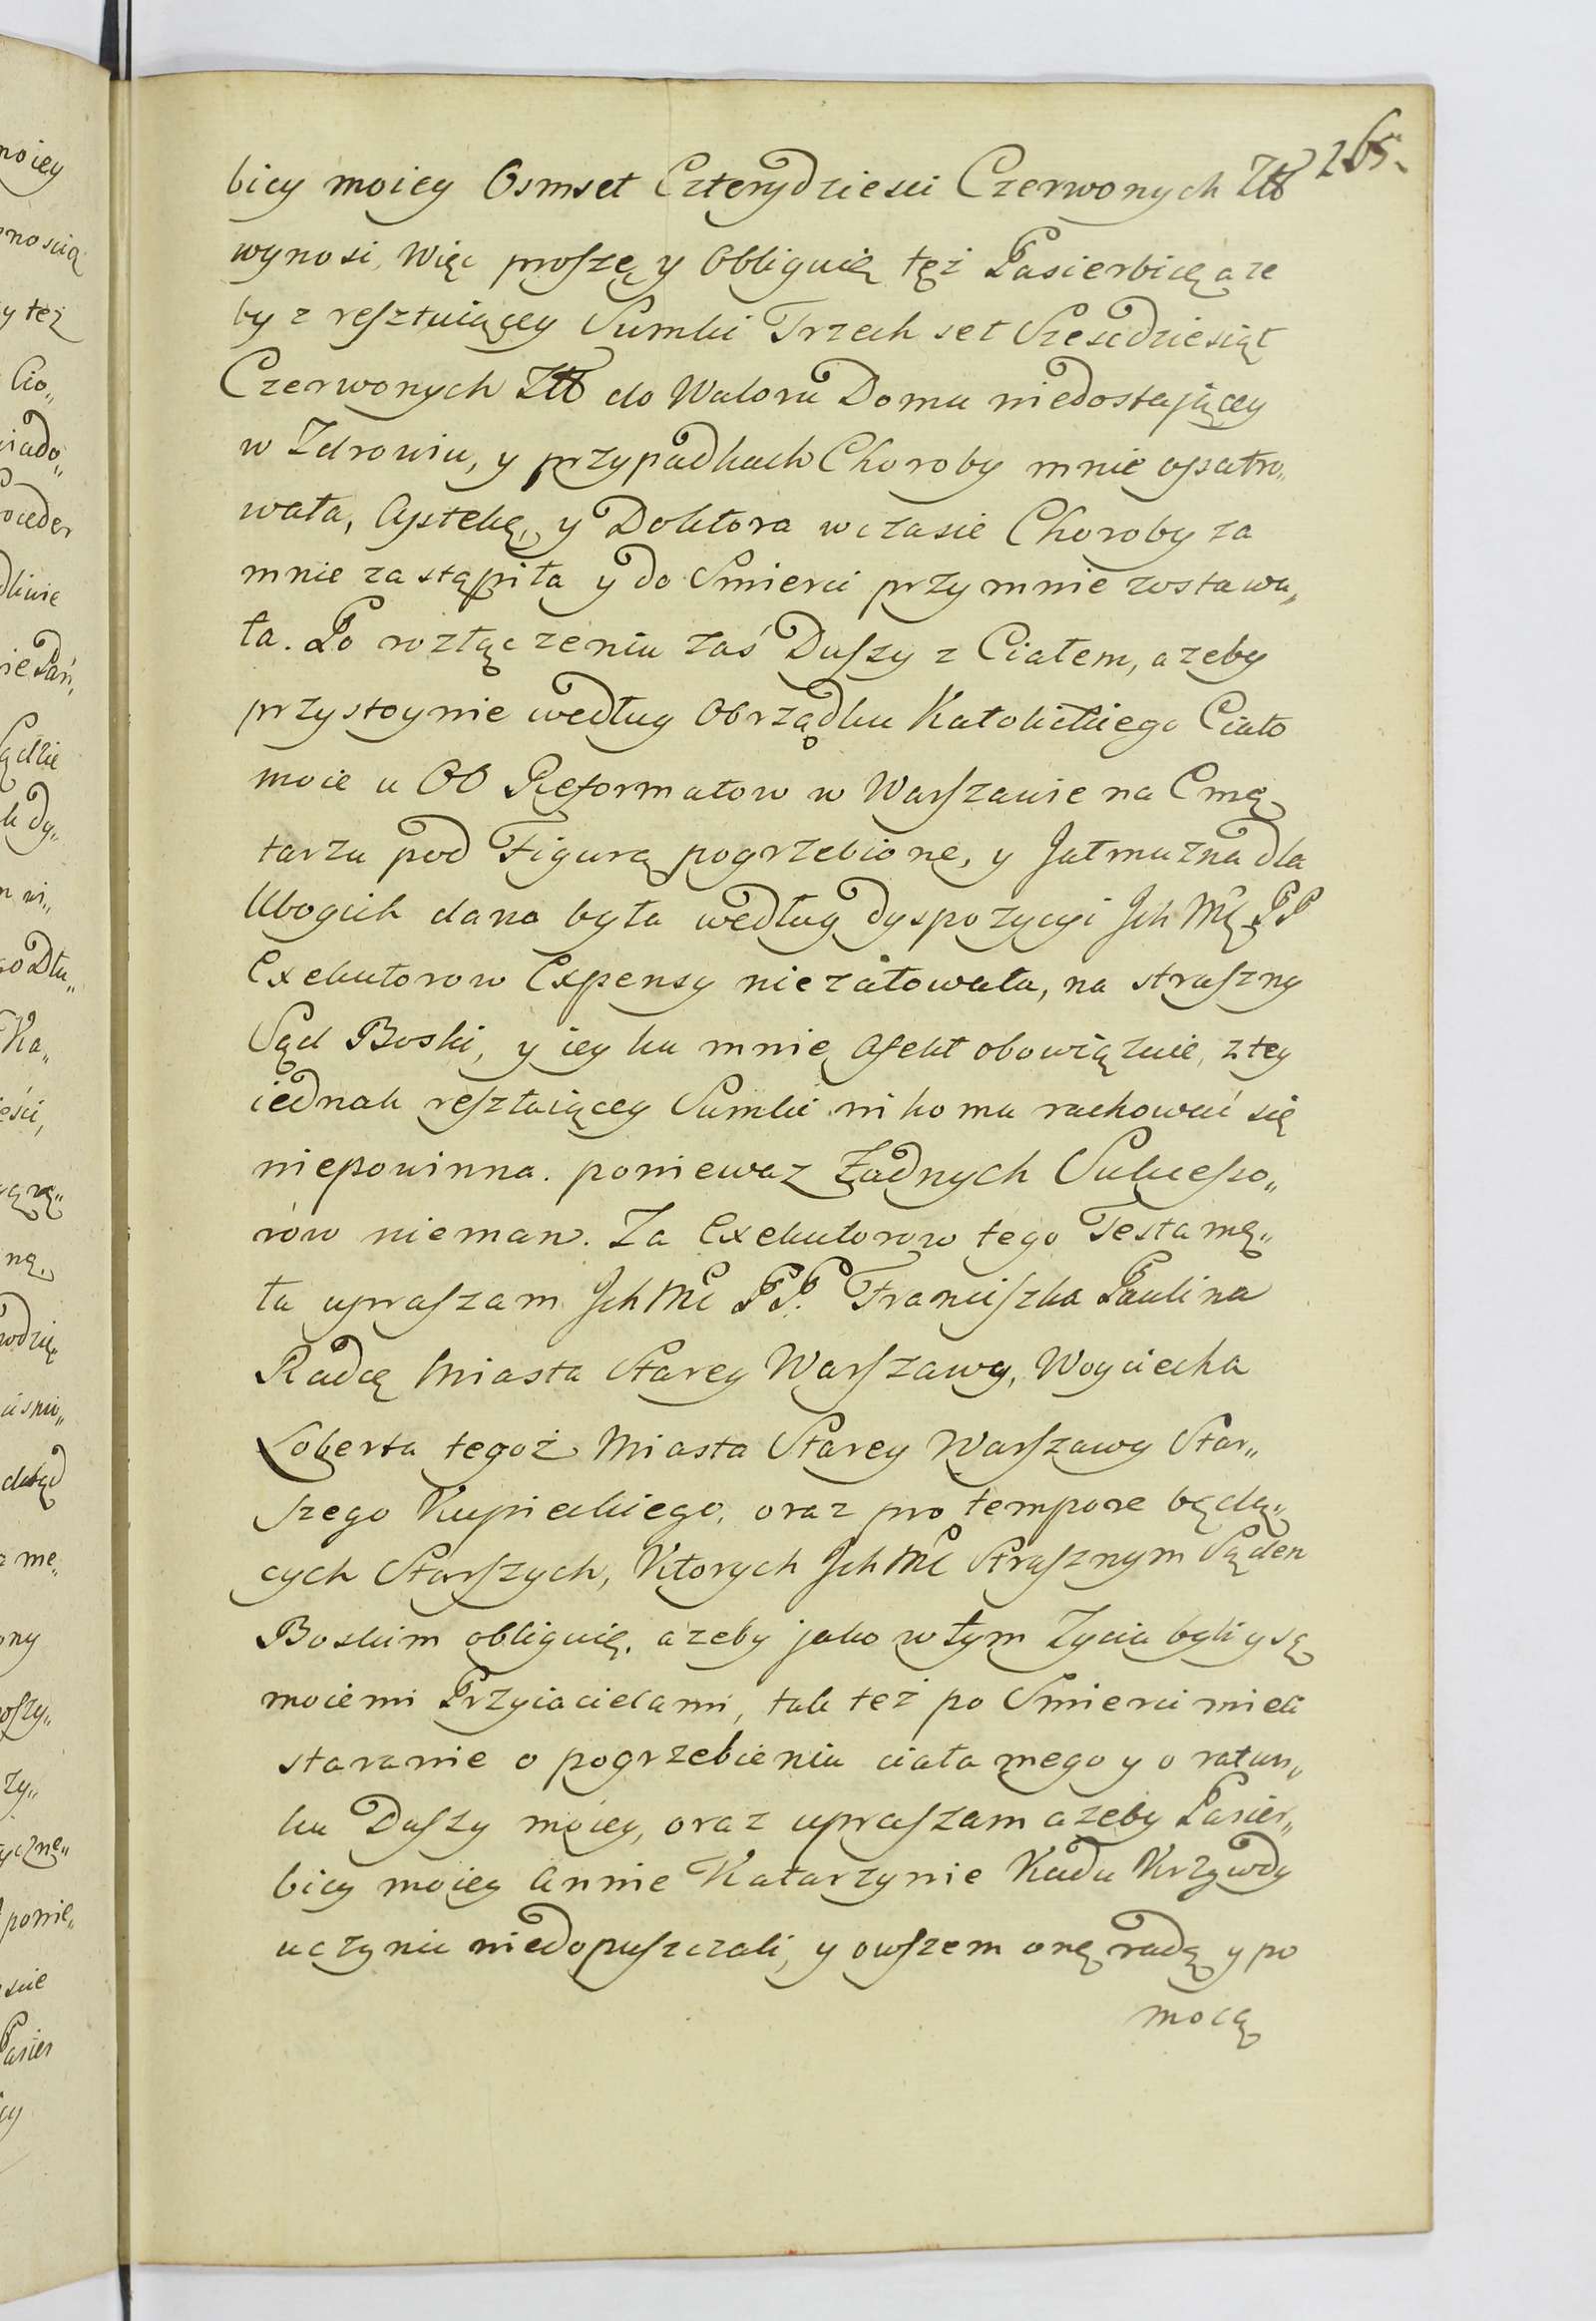 265.
bicy moiey Osmset Czterydziesci Czerwonych Złł
wynosi, Więc proszę y Obliguię tęż Pasierbicę aze
by z resztuiącey Sumki Trzech set Szescdziesiąt
Czerwonych Złł do Waloru Domu niedostającey
w Zdrowiu, y przypadkach Choroby mnie opatro„
wała, Aptekę, y Doktora w czasie Choroby za
mnie zastąpiła y do Smierci przy mnie zostawa„
ła. Po rozłączeniu zaś Duszy z Ciałem, azeby
przystoynie według Obrządku Katolickiego Ciało
moie u OO Reformatow w Warszawie na Cmę
tarzu pod Figurą pogrzebione, y Jałmuzna dla
Ubogich dana była według dyspozycyi Jch Mć PP
Exekutorow Expensy niezałowała, na straszny
Sąd Boski, y iey ku mnie afekt obowiązuię, z tey
iednak resztuiącey Sumki nikomu rachować się
niepowinna. poniewaz Żadnych Sukcesso„
rów nieman. Za Exekutorow tego Testamę„
tu upraszam Jch Mć PP. Franciszka Paulina
Radcę Miasta Starey Warszawy, Woyciecha
Loberta tegoż Miasta Starey Warszawy Star„
szego Kupieckiego, oraz pro tempore będą„
cych Starszych, Ktorych Jch Mć Strasznym Sądem
Boskim obliguię, azeby jako w tym Zyciu byli y są
moiemi Przyiacielami, tak też po Smierci mieli
staranie o pogrzebieniu ciała mego y o ratun„
ku Duszy moiey, oraz upraszam azeby Pasier„
bicy moiey Annie Katarzynie Kudu Krzywdy
uczynic niedopuszczali, y owszem onę radą y po
mocą